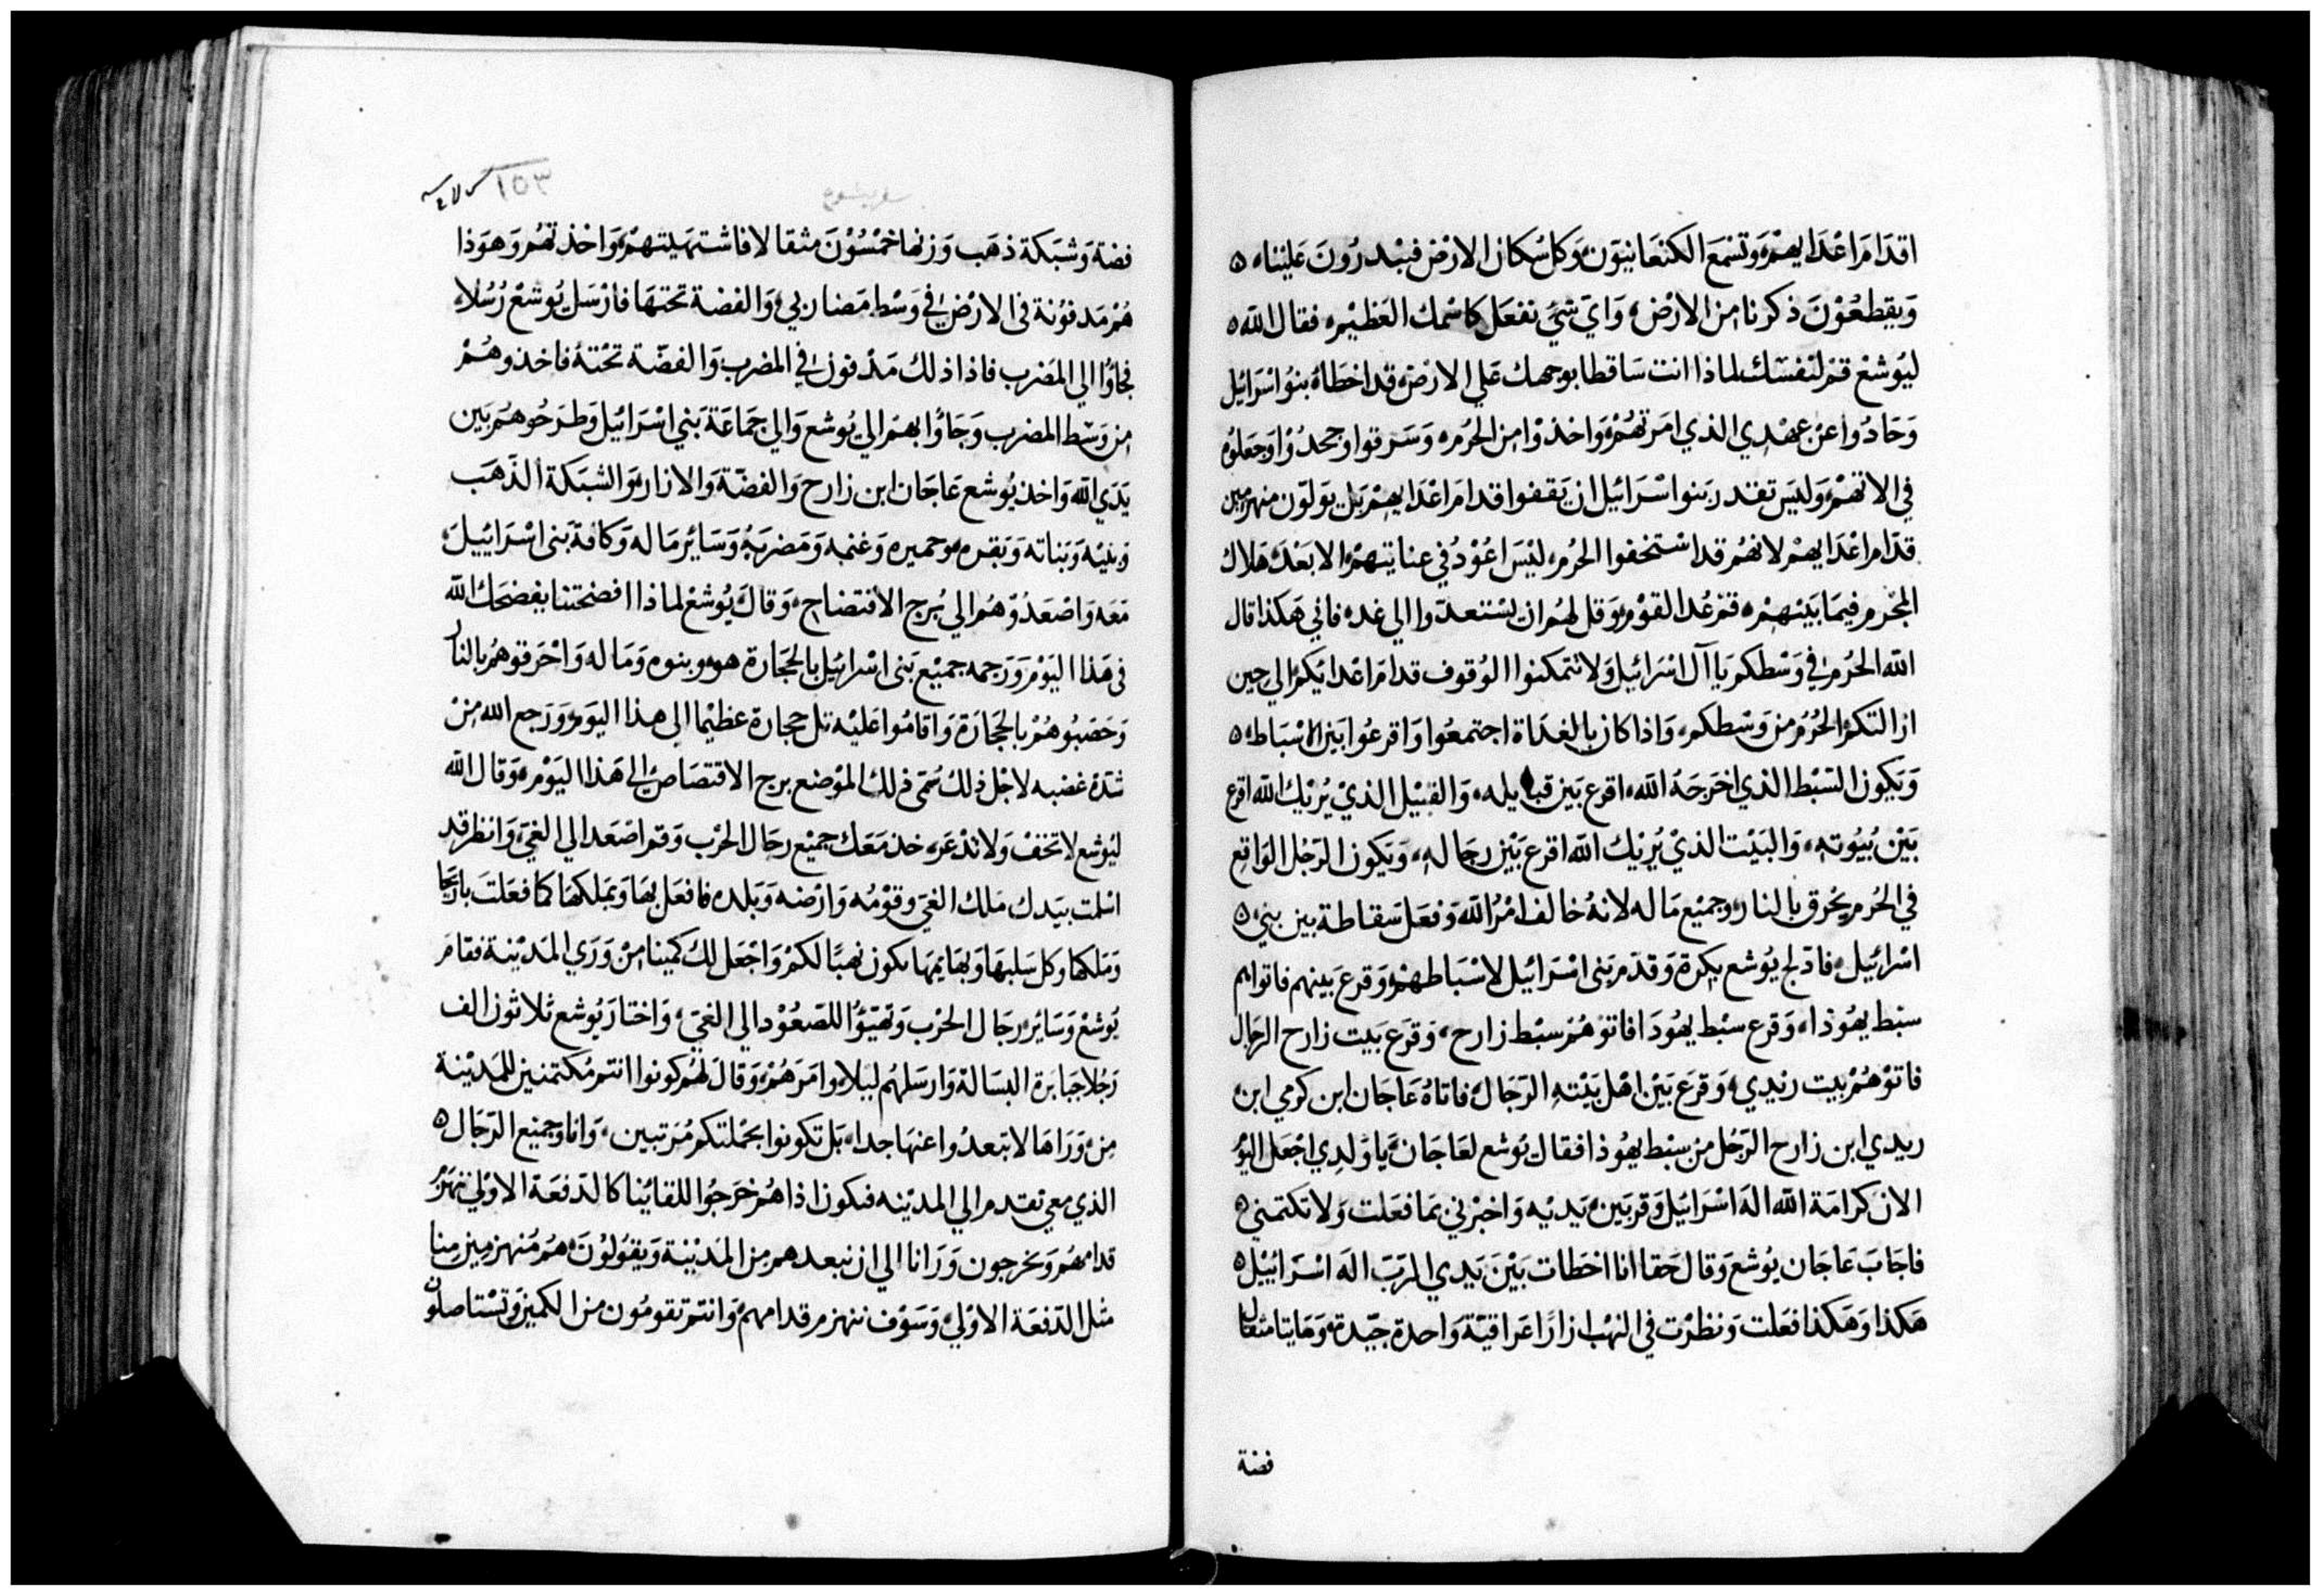 اقدَامَ اعْدَايهمْ وَتسْمَع الكنعَانيَون وَكل سُكان الارْض فيبْدرُونَ عَليْنا ه
وَيقطعُوْنَ ذكرنا من الارْض وَايَ شيْ تفعَل كاسْمك العَظيْم فقال الله ه
ليُوشعْ قمْ لنفسَك لماذا انت سَاقطا بوجهك عَلي الارْض قد اخطَاهُ بنوُ اسْرَائيل
وَحَادُوا عنْ عهْدي الذي امَرتهُمْ وَاخذوْا من الحُرم وَسَرقوا وجحدُوْا وَجعَلوُه
في الاتهمْ وَليسَ تقدر بنوا سْرَائيل ان يَقفوا قدام اعْدَايهمْ بَل يولوّن منهزمين
قدّام اعْدَايهمْ لانهُم قد اسْتخفوا الحُرم ليْسَ اعُوْدُ في عنايتهمْ الا بَعْدَ هَلاك
المجْرم فيمَا بَينهمْ قمْ عُد القوْم وَقل لهُم ان يسْتعدّوا الي غد فاني هَكذا قال
الله الحُرم في وَسْطكم يَا آل اسْرَائيل وَلا تتمكنوا الوُقوف قدام اعْدَايكمْ الي حين
ازالتكمْ الحُرمُ من وَسْطكم وَاذا كان بالغدَاة اجتمعُوا وَاقرعُوا بَين الاسْبَاط ه
وَيكون السَبْط الذي اخرَجَهُ الله اقرع بَين قبايله وَالقبيْل الذيْ يُريْك الله اقرع
بَيْن بُيُوته وَالبَيْت الذيْ يُريْك الله اقرع بَيْن رجَاله وَيَكون الرّجُل الوَاقع
في الحُرم يحْرق بالنار وجميْع مَا له لانهُ خالف امْرُ الله وَفعَل سَقاطة بين بني ه
اسْرائيل فادّلج يُوشع بكرة وَقدّم بَني اسْرَائيل لاسْبَاطهمْ وَقرعَ بَينهم فاتوا بهم
سبْط يهُوذا وَقرع سبْط يهُودَا فاتوْ هُمْ سبْط زارح وَقرَع بَيت زارح الرجَال
فاتوْهُمْ بيت ربْدي وَقرعَ بَيْن اهْل بَيْته الرّجَال فاتاهُ عَاجَان ابن كرمي ابن
ربدي ابن زارح الرّجُل من سبْط يهُوذا فقال يُوشع لعَاجَان يَا وَلدي اجْعَل اليَوْم
الان كرامَة الله الهَ اسْرَائيل وَقر بَين يَديْه وَاخبْرني بمَا فعَلت وَلا تكتمني ه
فاجَابَ عَاجَان يُوشع وَقال حَقا انا اخطَات بَيْنَ يَدي الرّبّ الهَ اسْرَائيْل ه
هَكذا وَهَكذا فعَلت وَنظرْت في النهْب ازارًا عَراقيَّة وَاحدة جيّدة وَهَايتا مثقال
فضة
١٥٣
سفر يشوع
فضة وَشبَكة ذهَب وَزنها خمْسُوْنَ مثقالا فاشتهَيتهمْ وَاخذتهُم وَهوَذا
هُمْ مَدفوُنة في الارْض في وَسْط مَضاربي وَالفضة تحتهَا فارْسَل يُوشعْ رُسُلا
فجاؤُا الي المَضرب فاذا ذلك مَدْفون في المضرب وَالفضّة تحْتهُ فاخذوهُمْ
من وَسْط المضرب وَجَاؤُا بهمْ الي يُوشع وَالي جَمَاعَة بَني اسْرَائيل وَطرَحُوهُم بَين
يَدَي الله وَاخذ يُوشع عَاجَان ابن زارح وَالفضّة وَالازار وَالشبَكة الذّهَب
وَبنيْه وَبَناته وَبَقره وحميره وَغنمه وَمَضربَهُ وَسَائر مَاله وَكافة بَني اسْرَائييل
مَعَه وَاصْعَدُوْهُم الي بُرج الافتضاح وَقالَ يُوشعْ لماذا افضحتنا يفضحَك الله
في هَذا اليَوْم وَرجمه جميْع بَني اسْرائيل بالحجَارة هو وبنوه وَمَاله وَاحْرَقوهُم بالنار
وَحَصَبوُهُمْ بالحجَارَة وَاقامُوا عَليْه تل حجارة عظيْما الي هذا اليَوم وَرَجع الله منْ
شدّة غضبه لاجْل ذلك سُمّي ذلك الموْضع برج الاقتصَاص الي هَذا اليَوْم وَقال الله
ليُوشع لا تخفْ وَلا تذْعَر خذ مَعَك جميْع رجَال الحرْب وَقم اصْعَد الي الغيّ وَانظر قد
اسْلمت بيَدك مَلك الغيّ وقوْمُه وَارْضه وَبَلده فافعَل بهَا وَبملكهَا كما فعَلتَ باريحَا
وَمَلكها وكل سَلبهَا وَبهَايمهَا يكون نهبًا لكمْ وَاجْعَل لك كمينا منْ وَرَي المَدْينة فقامَ
يُوشعْ وَسَائر رجَال الحرْب وَتهيّوُا للصّعُوْد الي الغيّ وَاختارَ يُوشع ثلاثون الف
رَجُلا جبَابرَة البسَالة وَارسَلهُم ليْلا وامَرَهُمْ وَقالَ لهُم كونوا انتم مُكتمنين للمَديْنة
منْ وَرَاها لا تبعدُوا عنهَا جدا بَل تكونوا بجمْلتكم مُرَتبين وَانا وجميْع الرّجَال ه
الذي معي نقدم الي المديْنه فيكون اذا هُم خرَجُوا للقائنا كالدّفعَة الاوْلي ننهزمُ
قدامهُم وَيخرجون وَرَانا الي ان نبعدهم من المَديْنة وَيقوُلوْنَ هُم مُنهزميْن منا
مثل الدّفعَة الاوْلي وَسَوْف ننهزم قدامهم وَانتم تقومُون من الكمين وَتسْتاصلون